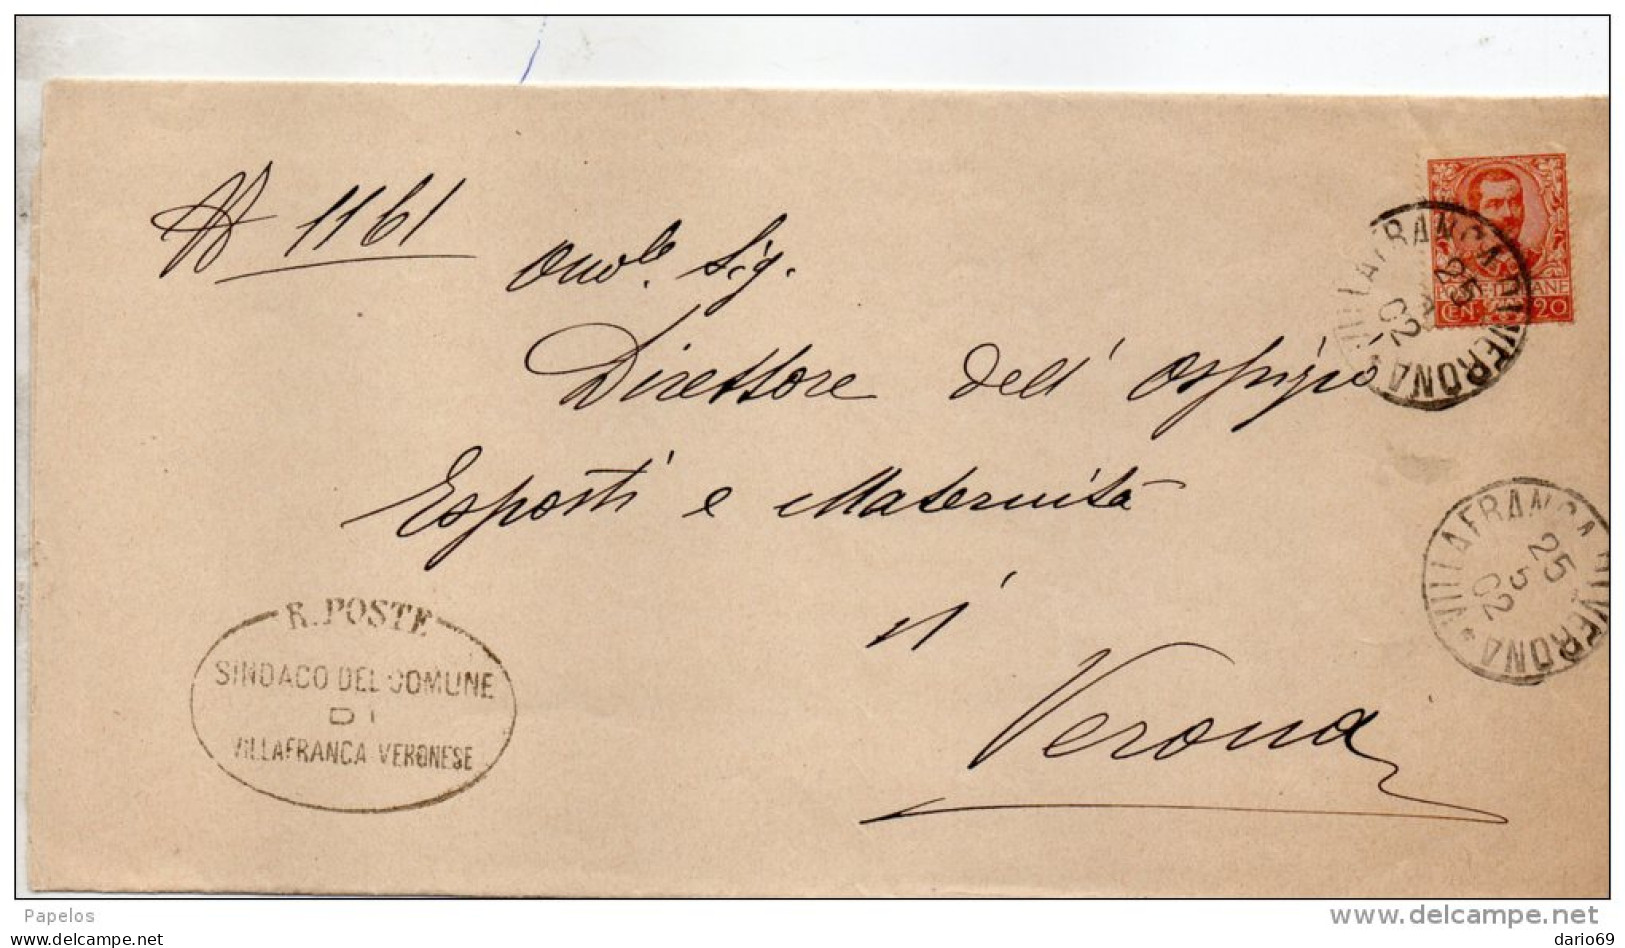 N 1161
Onole. Sig.
Direttore dell' Ospizio
Esposti e Maternità
di
Verona
POSTE ITALIANE
CEN. 20
VILLAFRANCA DI VERONA
25
02
VILLAFRANCA DI VERONA *
25
5
02
R. POSTE
SINDACO DEL COMUNE
DI
VILLAFRANCA VERONESE
Papelos
www.delcampe.net
dario69